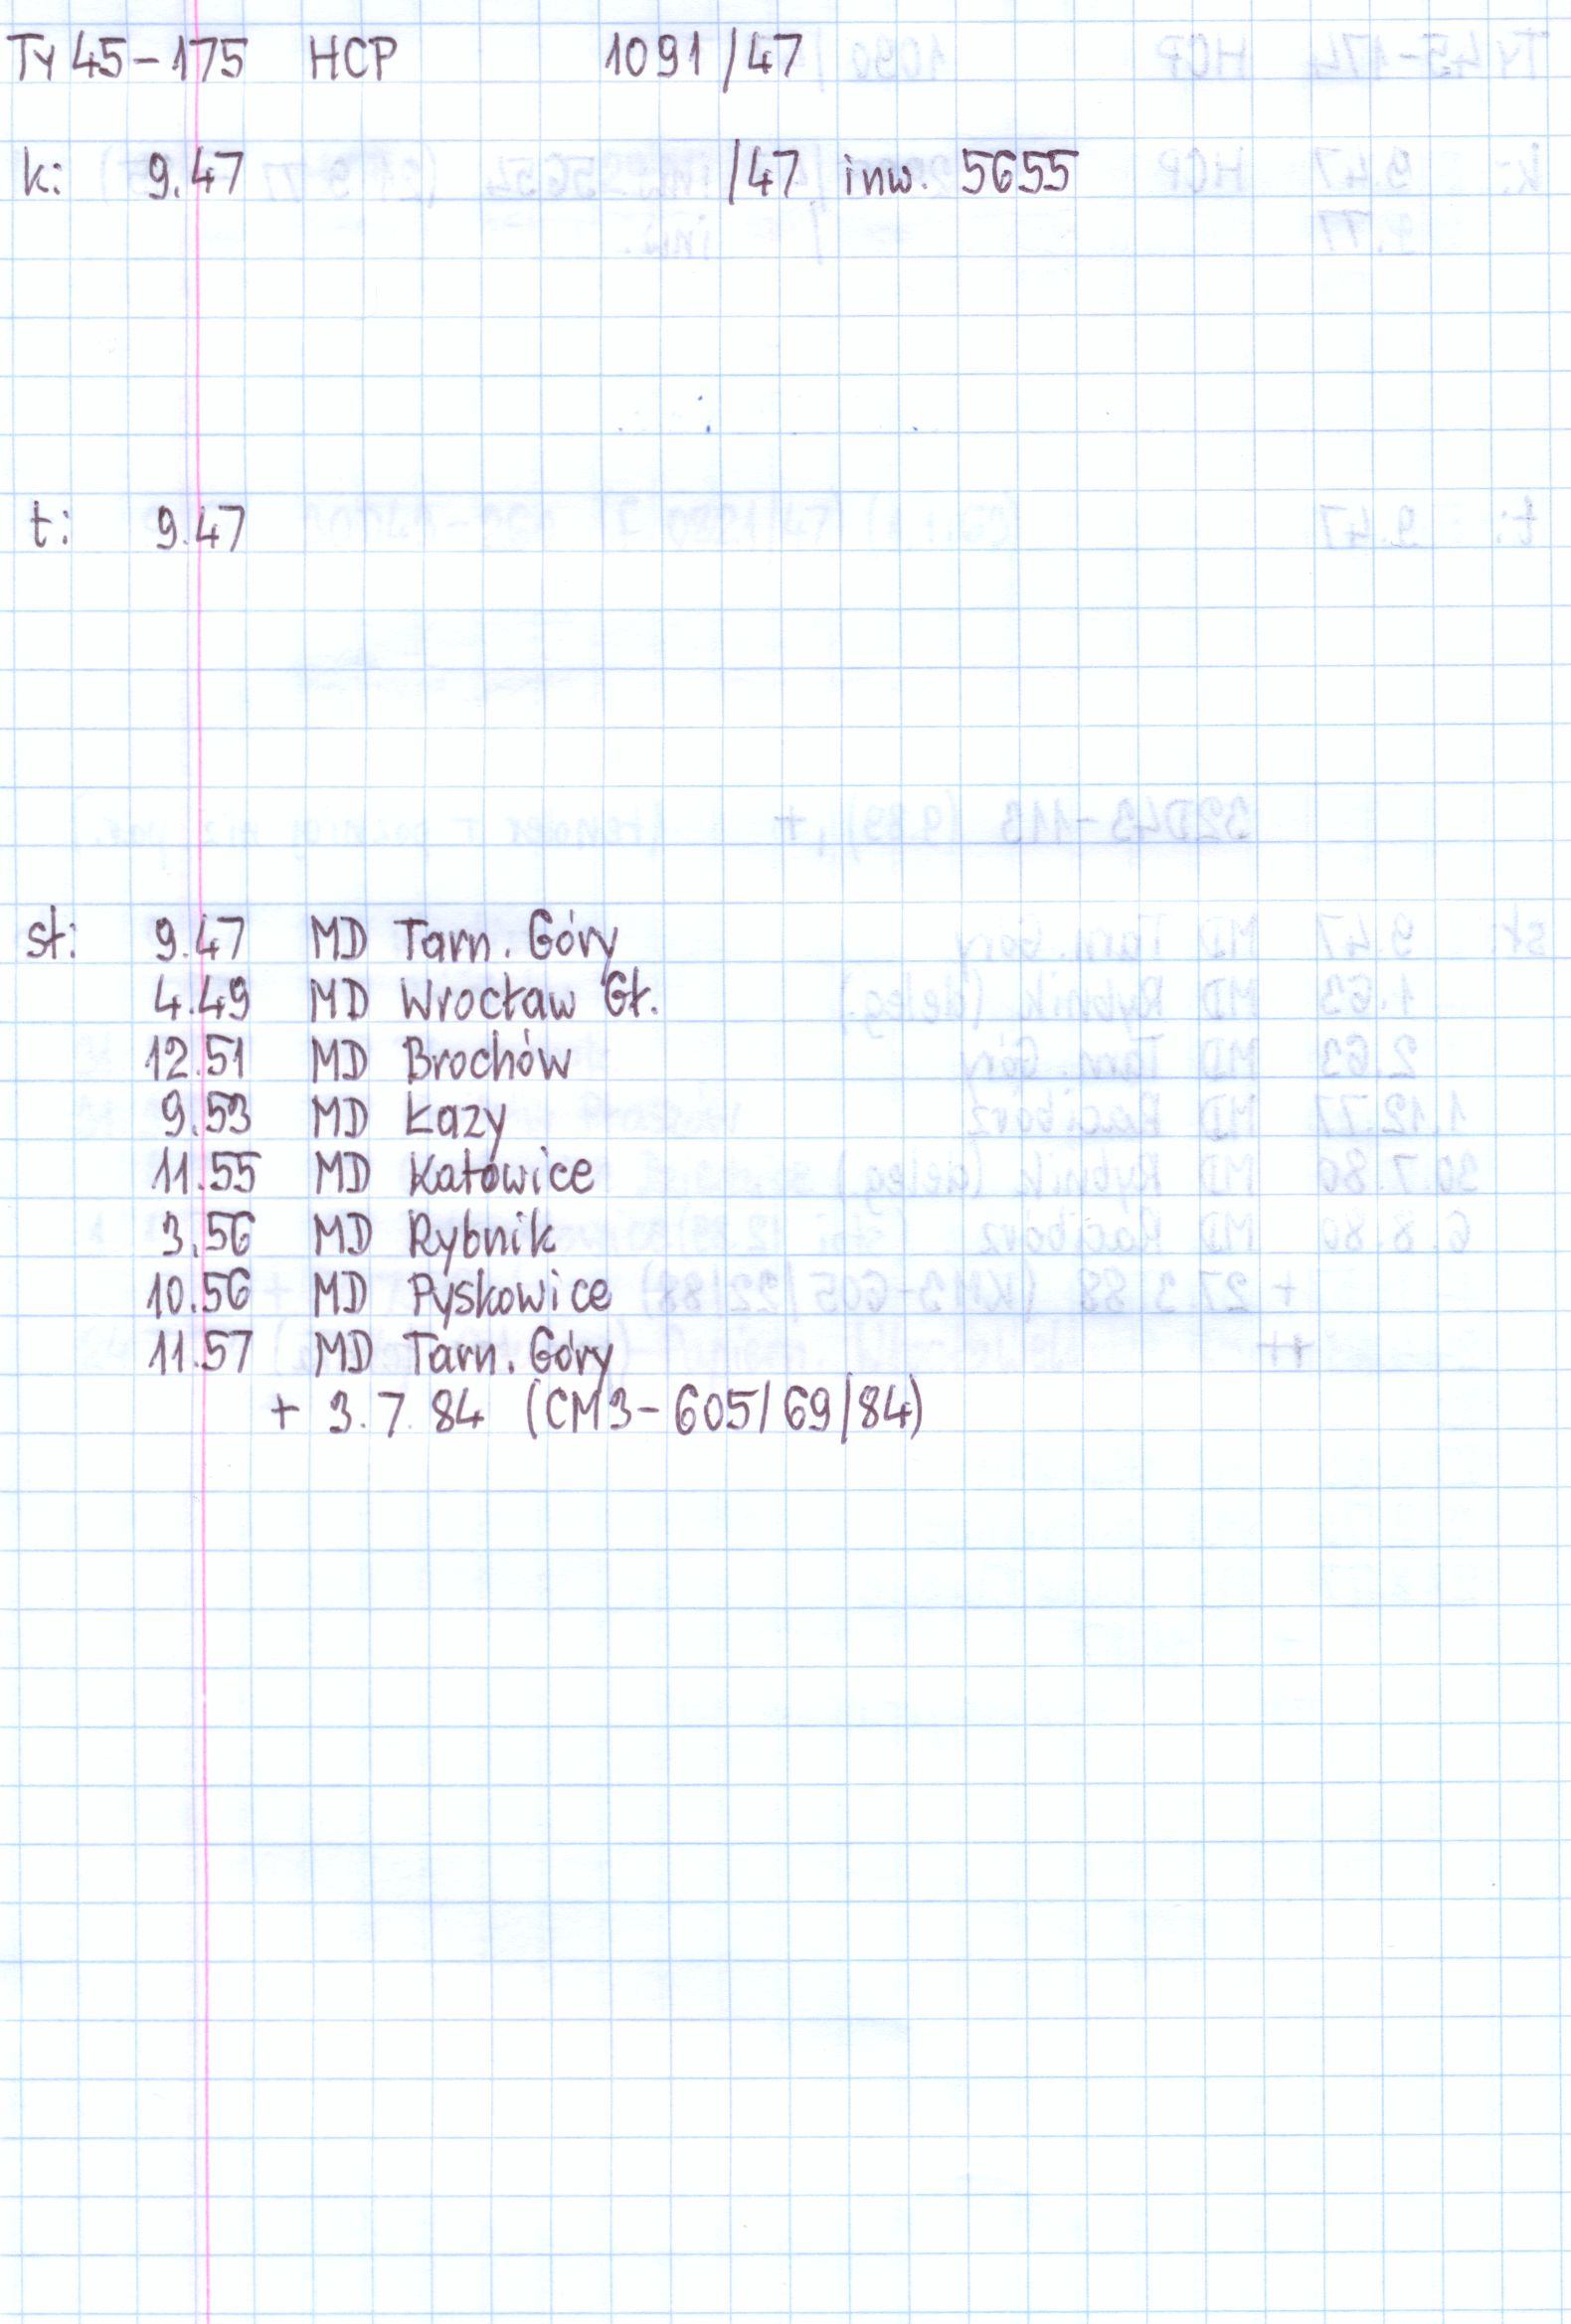 Ty 45-175 HCP 1091/47
k: 9.47 /47 inw. 5655
t: 9.47
st: 9.47 MD Tarn. Góry
4.49 MD Wrocław Gł.
12.51 MD Brochów
9.53 MD Łazy
11.55 MD Katowice
3.56 MD Rybnik
10.56 MD Pyskowice
11.57 MD Tarn. Góry
+ 3.7.84 (CM3-605/69/84)